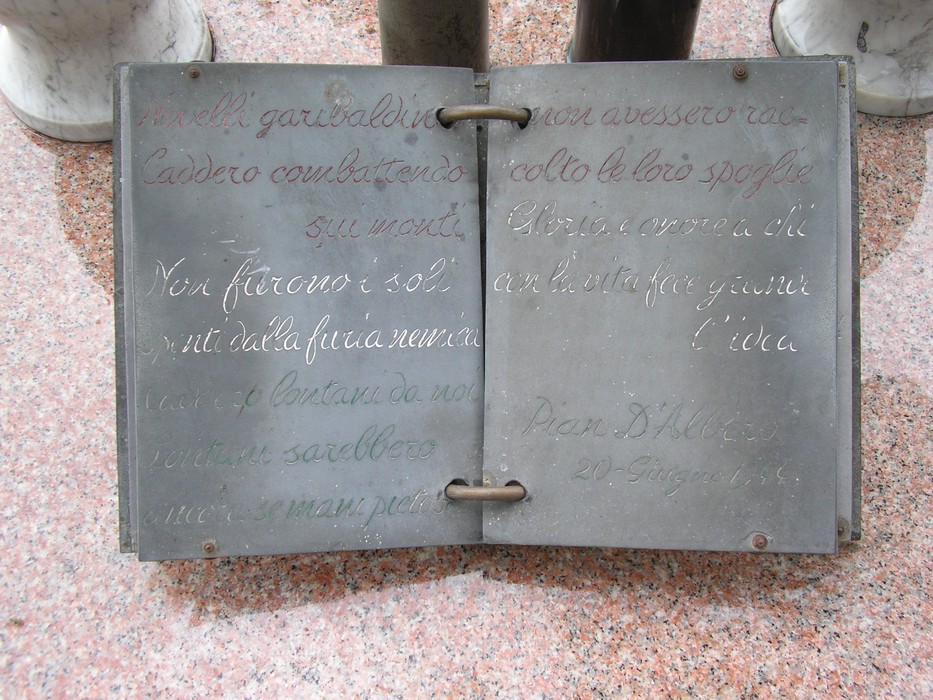 Novelli garibaldin
Caddero combattendo
sui monti
Non furono i soli
spenti dalla furia nemica
lontani da noi
Lontani sarebbero
ancora se mani pietose
non avessero rac-
colto le loro spoglie
Gloria e onore a chi
con la vita fece grande
l'idea
Pian D'Albero
20-Giugno 1944